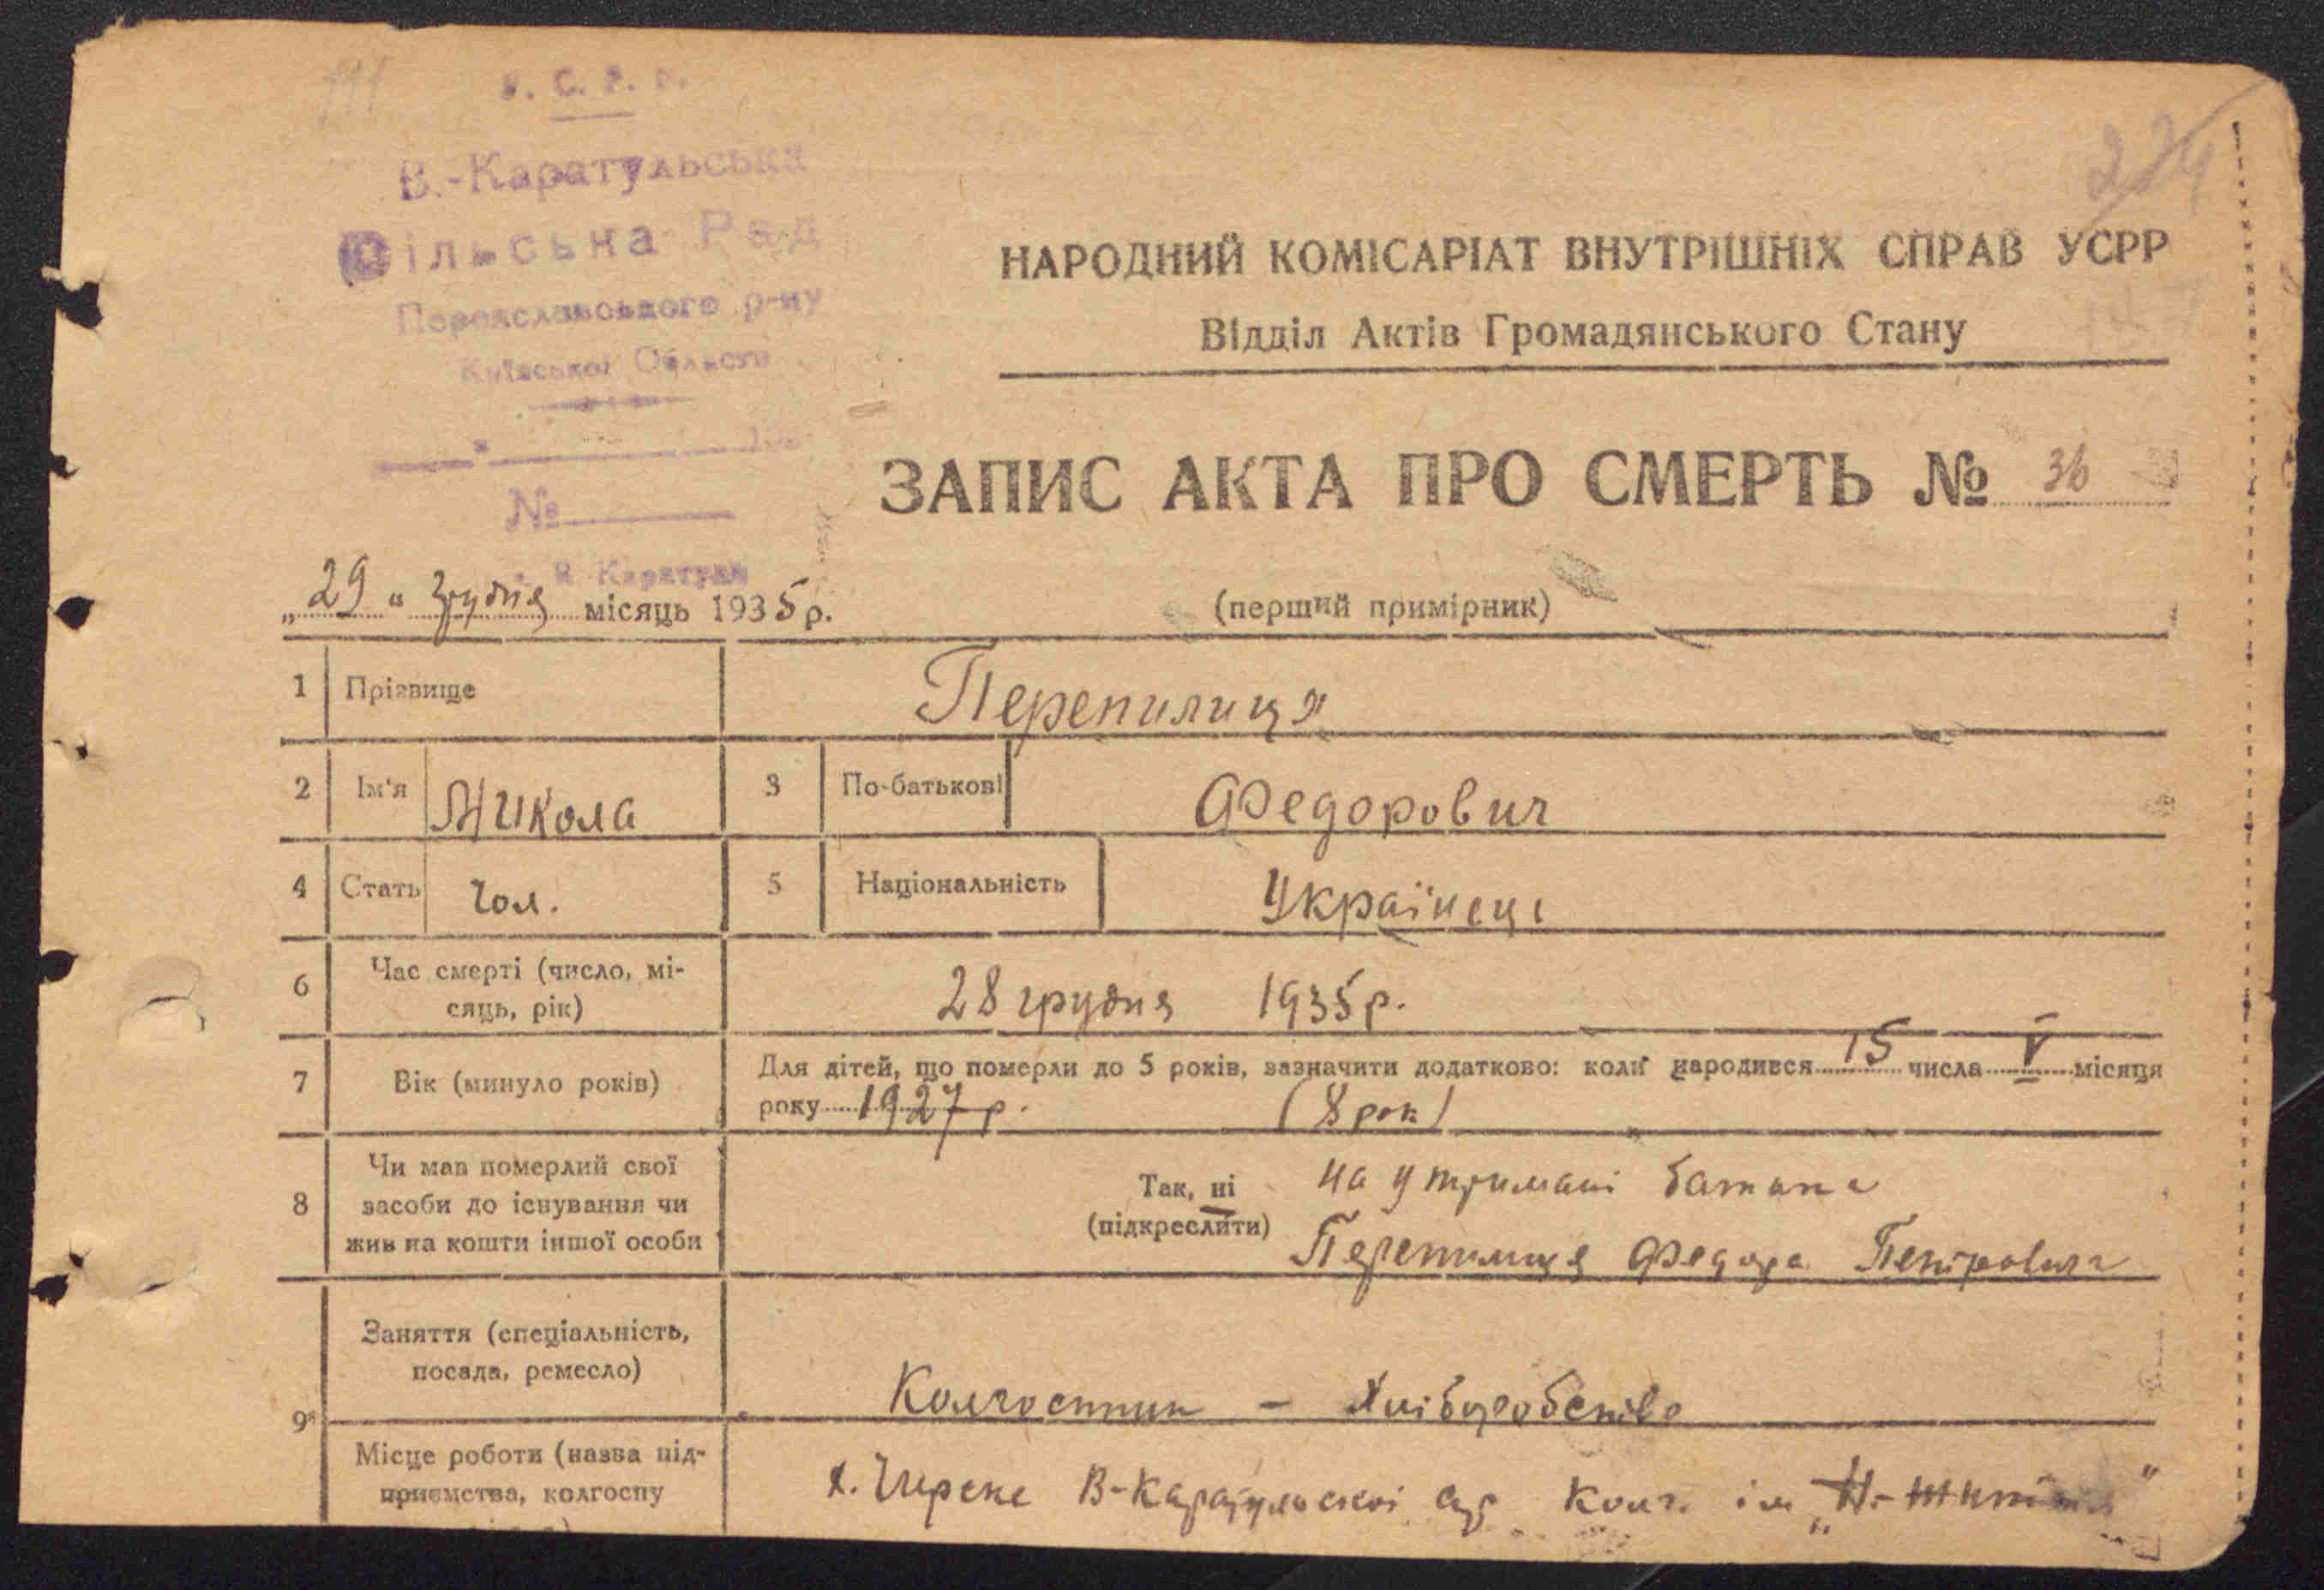 У. С. Р. Р.
В.-Каратульська
Сільська Рад
Переяславського р-ну
Київської Области
№
В Каратули
224
НАРОДНИЙ КОМІСАРІАТ ВНУТРІШНІХ СПРАВ УСРР
Відділ Актів Громадянського Стану
ЗАПИС АКТА ПРО СМЕРТЬ № 36
„29“ грудня місяць 1935 р.
(перший примірник)
1 Прізвище Перепилиця
2 Ім'я Микола 3 По-батькові Федорович
4 Стать Чол. 5 Національність Українець
6 Час смерті (число, мі-
сяць, рік) 28 грудня 1935 р.
7 Вік (минуло років) Для дітей, що померли до 5 років, зазначити додатково: коли народився 15 числа V місяця
року 1927 р. (8 рок)
8 Чи мав померлий свої
засоби до існування чи
жив на кошти іншої особи
Так, ні
(підкреслити)
на утримані батька
Перепилиця Федора Петровича
9 Заняття (спеціальність,
посада, ремесло) Колгоспник - Хліборобство
Місце роботи (назва під-
приємства, колгоспу
х. Чирське В-Каратульської с/р колг. ім „Н-Життя"